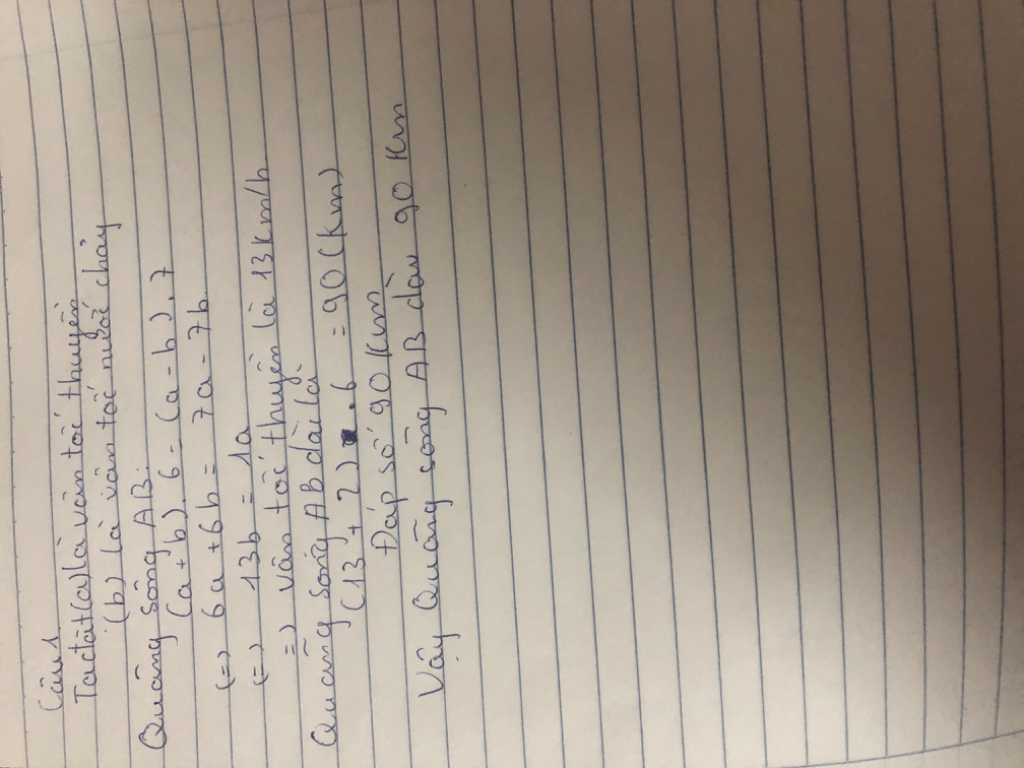 Câu 1
Ta đặt (a) là vân tốc thuyền
(b) là vân tốc nước chảy
Quãng sông AB:
(a+b).6=(a-b).7
(=) 6a+6b = 7a-7b
(=) 13b = 1a
=) vân tốc thuyền là 13km/h
Quãng sông AB dài là
(13+2).6 = 90 (km)
Đáp số 90 km
Vậy Quãng sông AB dài 90 km